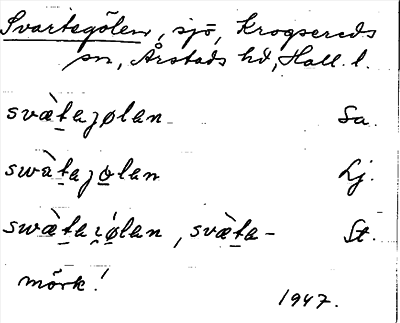 Svartegölen, sjö, Krogsereds
sn, Årstads hd, Hall. l.
svæ̀t̠aȷølan Sa.
swàt̠aȷø̠lan Lj.
swæ̀t̠aı̯ǿ̠lan, svæ̀t̠a- St.
mörk!
1947.